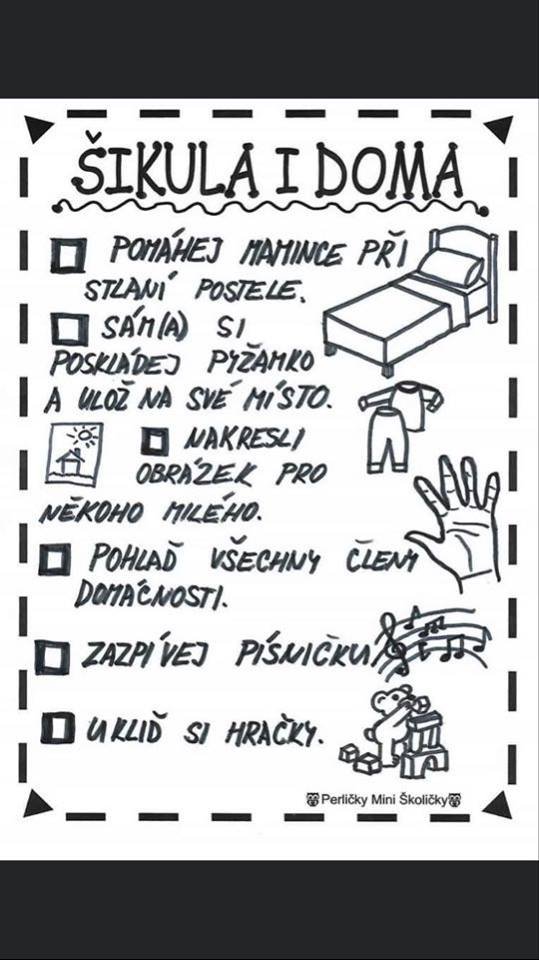 ŠIKULA I DOMA
POMÁHEJ MAMINCE PŘI
STLANÍ POSTELE.
SÁM(A) SI
POSKLÁDEJ PYŽAMKO
A ULOŽ NA SVÉ MÍSTO.
NAKRESLI
OBRÁZEK PRO
NĚKOHO MILÉHO.
POHLAĎ VŠECHNY ČLENY
DOMÁCNOSTI.
ZAZPÍVEJ PÍSNIČKU
UKLIĎ SI HRAČKY.
Perličky Mini Školičky